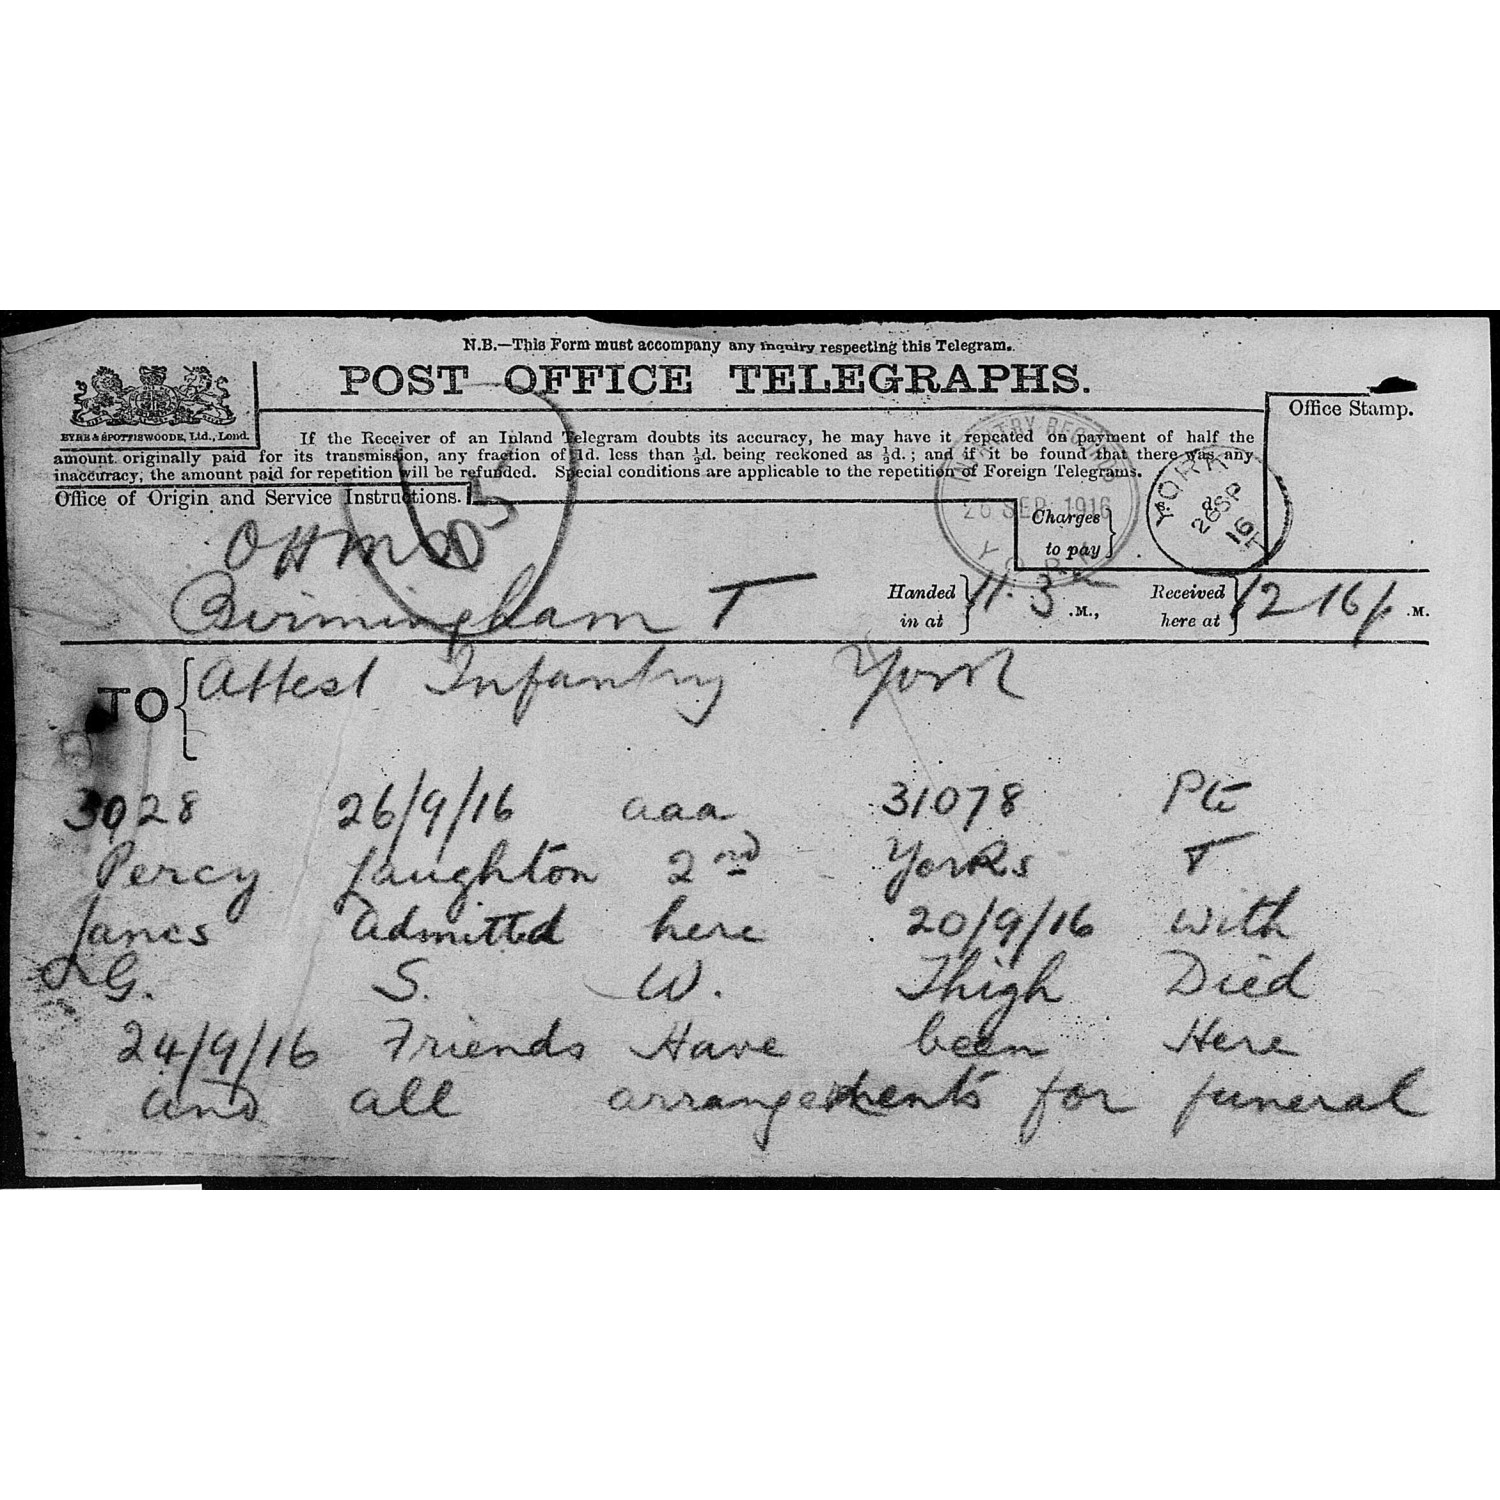 N.B.—This Form must accompany any inquiry respecting this Telegram.
POST OFFICE TELEGRAPHS.
EYRE & SPOTTISWOODE, Ltd., Lond.
Office Stamp.
If the Receiver of an Inland Telegram doubts its accuracy, he may have it repeated on payment of half the
amount originally paid for its transmission, any fraction of 1d. less than ½d. being reckoned as ½d.; and if it be found that there was any
inaccuracy, the amount paid for repetition will be refunded. Special conditions are applicable to the repetition of Foreign Telegrams.
Office of Origin and Service Instructions.
26 SEP 1916
YORK
YORK
26 SP
16
Charges
to pay
s. d.
OHMS
Birmingham T
Handed
in at
11.5
.M.,
Received
here at
12 16 p
.M.
TO
Attest Infantry York
3928 26/9/16 aaa 31078 Pte
Percy Laughton 2nd Yorks T
Lancs Admitted here 20/9/16 with
G. S. W. Thigh Died
24/9/16 Friends Have been Here
and all arrangements for funeral